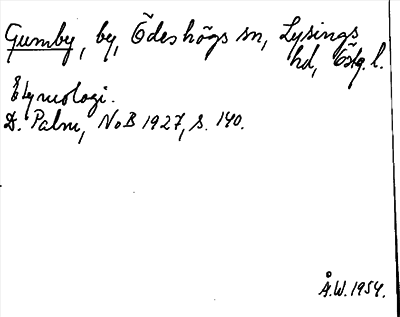 Gumby, by, Ödeshögs sn, Lysings
hd, Östg. l.
Etymologi.
D. Palm, NoB 1927, s. 140.
Å.W. 1954.